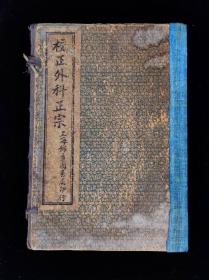 校正外科正宗
上海錦章圖書局印行